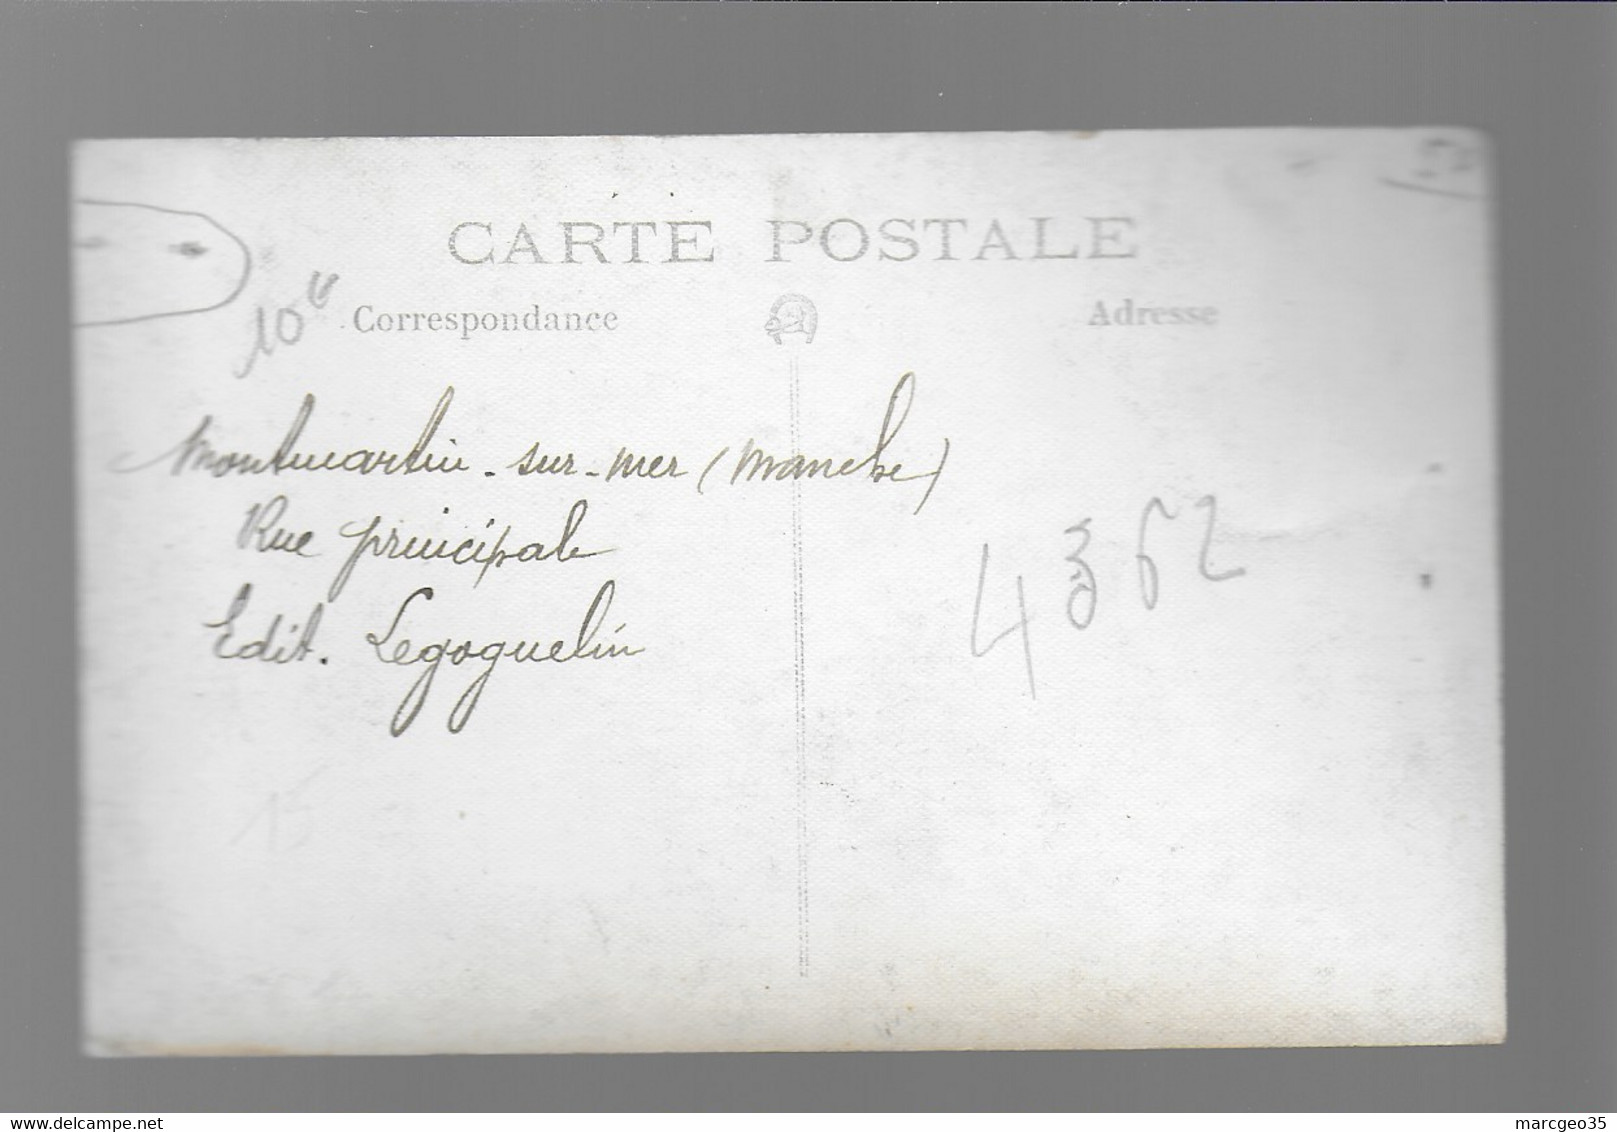 CARTE POSTALE
10"
Correspondance
Adresse
Montmartin-sur-mer (Manche)
Rue principale
Edit. Legoguelin
4362
15
delcampe.net
marcgeo35